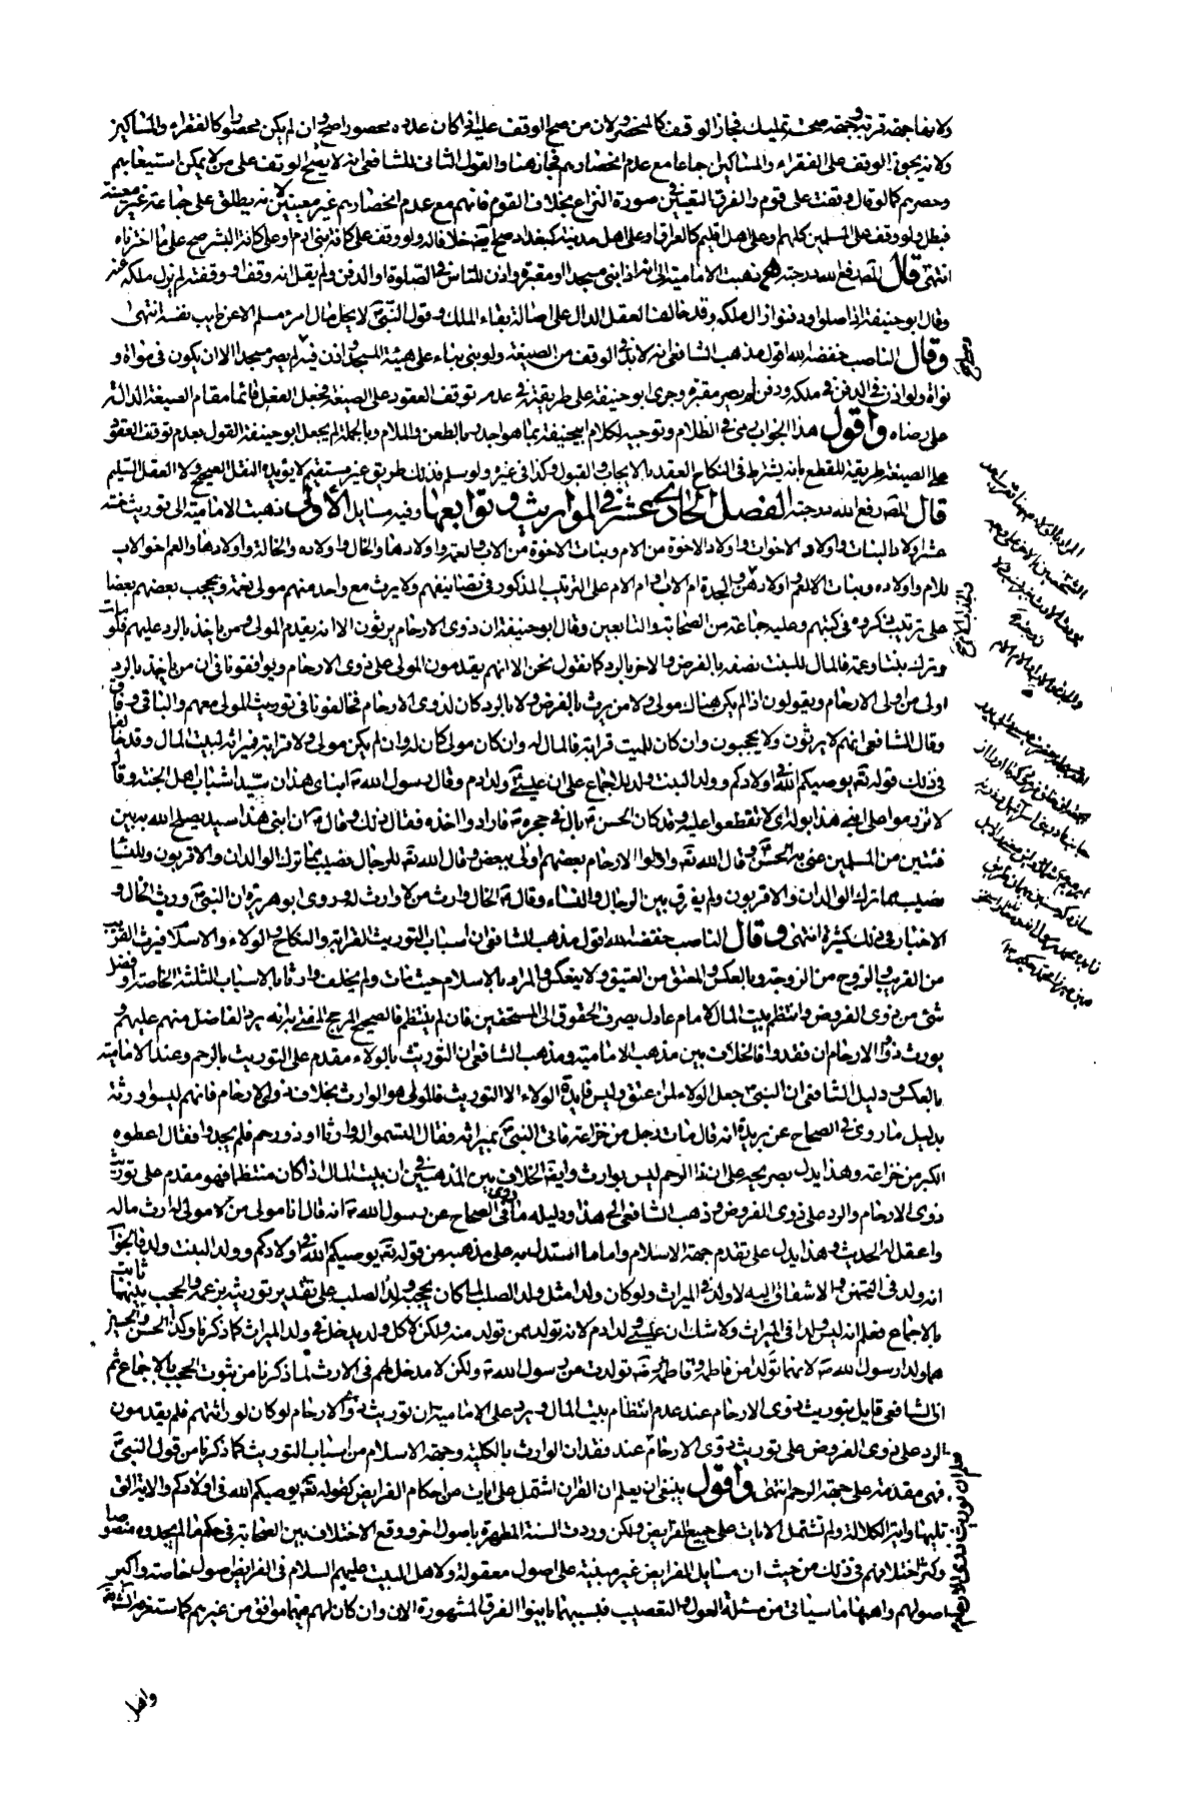 ولانها جهة قربة وجهة صحت تمليك فجاز الوقف كالمنحصر ولان من صح الوقف عليه اذا كان عدده محصورا صح وان لم يكن محصورا كالفقراء والمساكين
ولانه يجوز الوقف على الفقراء والمساكين اجماعا مع عدم انحصارهم فجاز هنا والقول الثانى للشافعى انه لا يصح الوقف على من لا يمكن استيعابهم
وحصرهم كما لو قال وقفت على قوم والفرق التعيين فى صورة النزاع بخلاف القوم فانهم مع عدم انحصارهم غير معينين لانه يطلق على جماعة غير معينة
فبطل ولو وقف على المسلمين كلهم او على اهل اقليم كالعراق او على اهل مدينة كبغداد صح ايضا خلافا له ولو وقف على كافة بنى ادم او على كافة البشر صح على ما اخترناه
انتهى قال المصنف رفع الله درجته ذهبت الامامية الى انه اذا بنى مسجدا او مقبرة واذن للناس فى الصلوة او الدفن ولم يقل انه وقف او وقفته لم يزل ملكه عنه
وقال ابو حنيفة اذا صلوا ودفنوا زال ملكه وقد خالف العقل الدال على اصالة بقاء الملك وقول النبى لا يحل مال امرء مسلم الا عن طيب نفسه انتهى
وقال الناصب خفضه الله اقول مذهب الشافعى انه لابد فى الوقف من الصيغة ولو بنى بناء على هيئة المسجد واذن فيه لم يصر مسجدا الا ان يكون فى موات و
نواه ولو اذن فى الدفن فى ملكه ودفن لم يصر مقبرة وجرى ابو حنيفة على طريقته فى عدم توقف العقود على الصيغة فجعل الفعل قائما مقام الصيغة الدالة
على رضاه واقول هذا الجواب رمى فى الظلام وتوجيه لكلام ابيحنيفة بما هو اجدر بالطعن والملام وبالجملة لم يجعل ابو حنيفة القول بعدم توقف العقود
على الصيغة طريقة للقطع بانه يشترط فى النكاح العقد بالايجاب والقبول وكذا فى غيره ولو سلم فذلك طريق غير مستقيم لا يؤيده النقل الصحيح ولا العقل السليم
قال المصنف رفع الله درجته الفصل الحاديعشر فى المواريث وتوابعها وفيه مسايل الأولى ذهبت الامامية الى توريث ستة
عشر اولاد البنات واولاد الاخوات واولاد الاخوة من الام وبنات الاخوة من الاب والعمة واولادها والخال واولاده والخالة واولادها والعم اخو الاب
للام واولاده وبنات العم واولادهن والجدة ام الاب وام الام على الترتيب المذكور فى تصانيفهم ولا يرث مع واحد منهم مولى نعمة ويحجب بعضهم بعضا
على ترتيب ذكروه فى كتبهم وعليه جماعة من الصحابة والتابعين وقال ابو حنيفة ان ذوى الارحام يرثون الا انه يقدم المولى ومن ياخذ بالرد عليهم فلو مات
وترك بنتا وعمة فالمال للبنت نصفه بالفرض والاخر بالرد كما نقول نحن الا انهم يقدمون المولى على ذوى الارحام ويوافقونا فى ان من ياخذ بالرد
اولى من اولى الارحام ويقولون اذا لم يكن هناك مولى ولا من يرث بالفرض ولا بالرد كان لذوى الارحام فخالفونا فى توريث المولى معهم والباقى وفاق
وقال الشافعى انهم لا يرثون ولا يحجبون وان كان للميت قرابة فالمال له وان كان مولى كان له وان لم يكن مولى ولا قرابة فميراثه لبيت المال وقد خالفا
فى ذلك قوله تعالى يوصيكم الله فى اولادكم وولد البنت ولد بالاجماع على ان عيسى ولد ادم وقال رسول الله ابناى هذان سيدا شباب اهل الجنة وقال
لا تزرموا على ابنى هذا بوله اى لا تقطعوا عليه وقد كان الحسن بال فى حجره فارادوا اخذه فقال ذلك وقال ان ابنى هذا سيد يصلح الله به بين
فئتين من المسلمين عنى به الحسن وقال الله تعالى واولوا الارحام بعضهم اولى ببعض وقال الله تعالى للرجال نصيب مما ترك الوالدان والاقربون وللنساء
نصيب مما ترك الوالدان والاقربون ولم يفرق بين الرجال والنساء وقال الخال وارث من لا وارث له وروى ابو هريرة ان النبى ورث الخال و
الاخبار فى ذلك كثيرة انتهى وقال الناصب خفضه الله اقول مذهب الشافعى ان اسباب التوريث القرابة والنكاح والولاء والاسلام فيرث القريب
من القريب والزوج من الزوجة وبالعكس والمعتق من العتيق ولا ينعكس والمراد بالاسلام حيث مات ولم يخلف وارثا بالاسباب الثلثة الخاصة او فضل
شئ من ذوى الفروض وانتظم بيت المال لامام عادل يصرف الحقوق الى المستحقين فان لم ينتظم فالصحيح المرجح المفتى به انه يرد الفاضل منهم عليهم و
يورث ذوا الارحام ان فقدوا فالخلاف بين مذهب الامامية ومذهب الشافعى ان التوريث بالولاء مقدم على التوريث بالرحم وعند الامامية
بالعكس ودليل الشافعى ان النبى جعل الولاء لمن عتق وليس فايدة الولاء الا التوريث فالمولى هو الوارث بخلاف ذوى الارحام فانهم ليسوا ورثة
بدليل ما روى فى الصحاح عن بريدة انه قال مات رجل من خزاعة فاتى النبى بميراثه فقال التمسوا له وارثا او ذو رحم فلم يجدوا فقال اعطوه
الكبر من خزاعة وهذا يدل بصريحه على ان ذا الرحم ليس بوارث وايضا الخلاف بين المذهبين فى ان بيت المال اذا كان منتظما فهو مقدم على توريث
ذوى الارحام والرد على ذوى الفروض وذهب الشافعى الى هذا ودليله ما روى فى الصحاح عن رسول الله انه قال انا مولى من لا مولى له ارث ماله
واعقل له الحديث وهذا يدل على تقدم جهة الاسلام واما ما استدل به على مذهبه من قوله تعالى يوصيكم الله فى اولادكم وولد البنت ولد فالجواب
انه ولد فى التحنن والاشفاق اليه لا ولد فى الميراث ولو كان ولدا مثل ولد الصلب لما كان يحجبه ولد الصلب على تقدير توريث من عمه والحجب بينهما ثابت
بالاجماع فعلم انه ليس ولدا فى الميراث ولا شك ان عيسى ولد ادم لانه تولد ممن تولد منه ولكن لا كل ولد يدخل فى ولد الميراث كما ذكرنا وكذا الحسن والحسين
هما ولدا رسول الله لانهما تولدا من فاطمة وفاطمة تولدت من رسول الله ولكن لا مدخل لهم فى الارث لما ذكرنا من ثبوت الحجب بالاجماع ثم
ان الشافعى قايل بتوريث ذوى الارحام عند عدم انتظام بيت المال ويرد على الامامية ان توريث ذوى الارحام لو كان لوراثتهم فلم يقدمون
الرد على ذوى الفروض على توريث ذوى الارحام عند فقدان الوارث بالكلية وجهة الاسلام من اسباب التوريث كما ذكرنا من قول النبى
فهى مقدمة على جهة الرحم انتهى واقول ينبغى ان يعلم ان القران اشتمل على ايات من احكام الفرايض كقوله تعالى يوصيكم الله فى اولادكم والاية التى
تليها واية الكلالة ولم تشتمل الايات على جميع الفرايض ولكن وردت السنة المطهرة باصول اخر ووقع الاختلاف بين الصحابة فى حكم ما لم يجدوه منصوصا
وكثر اختلافهم فى ذلك من حيث ان مسايل الفرايض غير مبنية على اصول معقولة ولاهل البيت عليهم السلام فى الفرايض اصول خاصة واكبر
اصولهم واهمها ما سياتى من مسئلة العول والتعصيب فبسببهما باينوا الفرق المشهورة الان وان كان لهم فيهما موافق من غيرهم كما ستعرفه